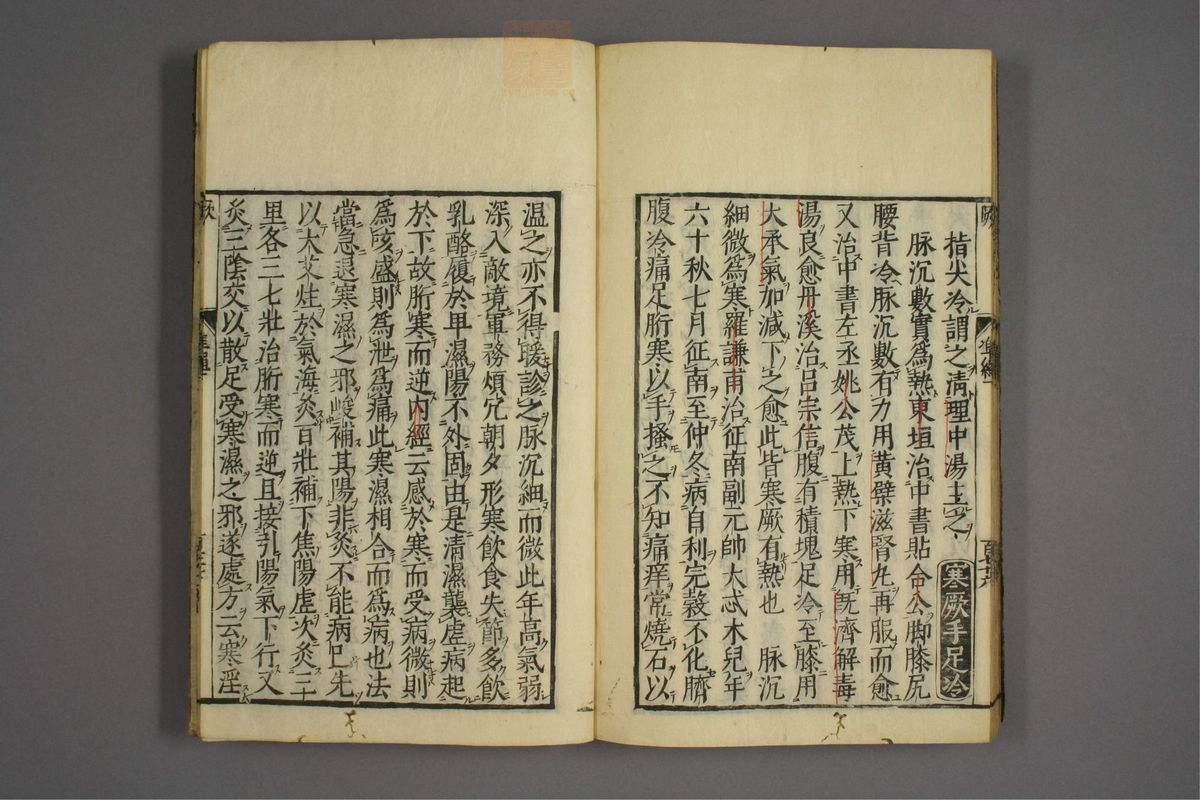 指尖冷謂之清理中湯主之 寒厥手足冷
脉沉數實爲熱東垣治中書貼合公脚膝尻
腰背冷脉沉數有力用黄檗滋腎丸再服而愈
又治中書左丞姚公茂上熱下寒用既濟解毒
湯良愈丹溪治吕宗信腹有積塊足冷至膝用
大承氣加減下之愈此皆寒厥有熱也 脉沉
細微爲寒羅謙甫治征南副元帥大忒木兒年
六十秋七月征南至仲冬病自利完穀不化臍
腹冷痛足胻寒以手搔之不知痛痒常燒石以
温之亦不得暖診之脉沉細而微此年高氣弱
深入敵境軍務煩冗朝夕形寒飲食失節多飲
乳酪履於卑濕陽不外固由是清濕襲虚病起
於下故胻寒而逆内經云感於寒而受病微則
爲咳盛則爲泄爲痛此寒濕相合而爲病也法
當急退寒濕之邪峻補其陽非灸不能病已先
以大艾炷於氣海灸百壯補下焦陽虚次灸三
里各三七壯治胻寒而逆且接引陽氣下行又
灸三陰交以散足受寒濕之邪遂處方云寒淫
厥
準繩